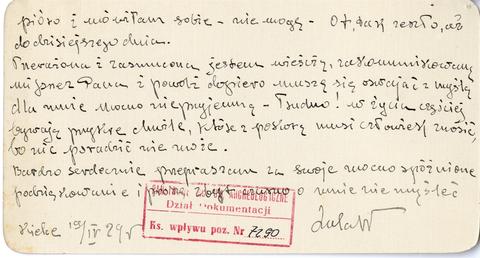 pióro i mówiłam sobie - nie mogę - Ot, tak zeszło, aż
do dzisiejszego dnia.
Przerażona i zasmucona jestem wieścią, zakomunikowaną
mi przez Pana i powoli dopiero muszę się oswajać z myślą
dla mnie mocno nieprzyjemną - Trudno! w życiu częściej
bywają przykre chwile, które z pokorą musi człowiek znosić,
bo nic poradzić nie może.
Bardzo serdecznie przepraszam za swoje mocno spóźnione
podziękowanie i proszę zbyt o mnie nie myśleć
ARCHEOLOGICZNE
Dział Dokumentacji
Ks. wpływu poz. Nr 7290
Kielce 19/IV 29 r